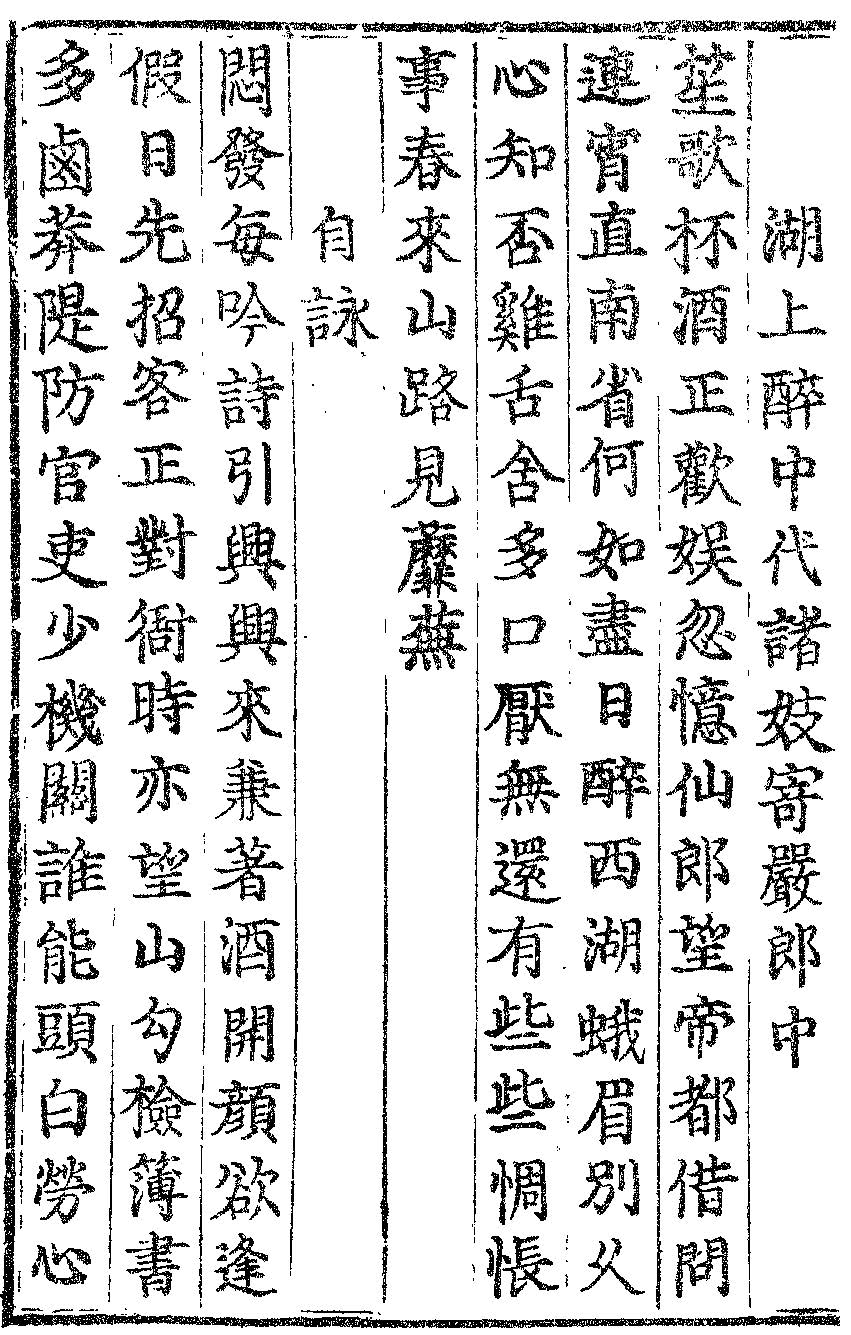 湖上醉中代諸妓寄嚴郎中
笙歌杯酒正歡娛忽憶仙郎望帝都借問
連宵直南省何如盡日醉西湖蛾眉別久
心知否雞舌含多口厭無還有些些惆悵
事春來山路見蘼蕪
自詠
悶發每吟詩引興興來兼著酒開顏欲逢
假日先招客正對衙時亦望山勾檢簿書
多鹵莽隄防官吏少機關誰能頭白勞心